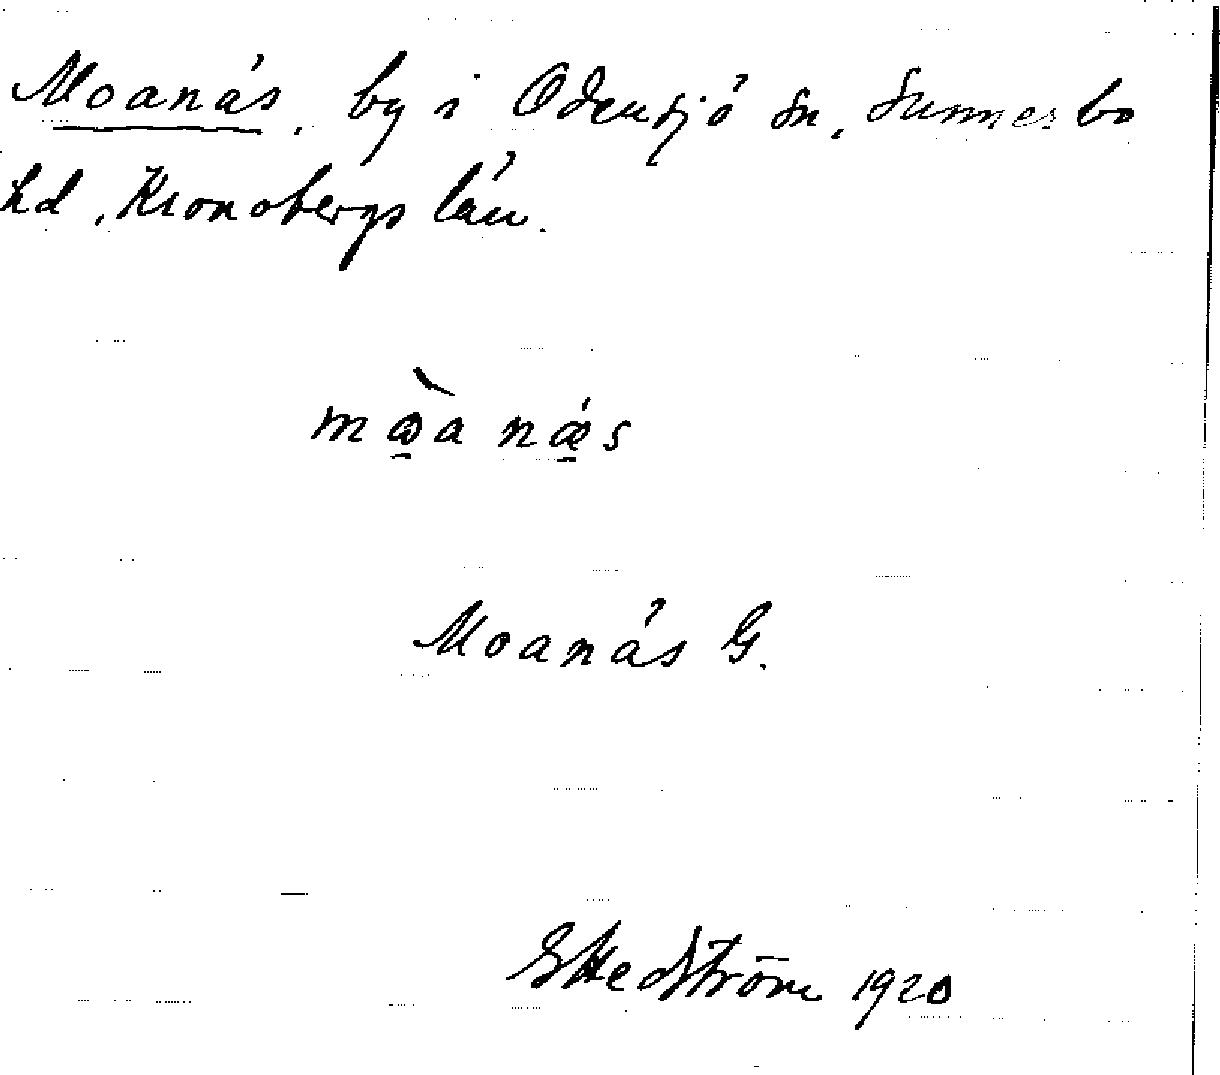 Moanäs, by i Odensjö sn, Sunnerbo
hd, Kronobergs län.
Moanäs G.
G Hedström 1920